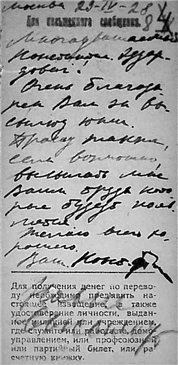 Москва 23-IV-28
Для письменного сообщения.
Многоуважаемый
Константин Эдуар-
дович!
Очень благода-
рен Вам за вы-
сылку книг.
Прошу также,
если возможно,
высылать мне
Ваши труды кото-
рые будут появ-
ляться.
Желаю всего хо-
рошего.
Ваш
Для получения денег по перево-
ду необходимо предъявить на-
стоящее извещение, а также
удостоверение личности, выдан-
ное милицией или учреждением,
где служит или работает, домо-
управлением, или профсоюзной
или партийный билет, или рас-
четную книжку.